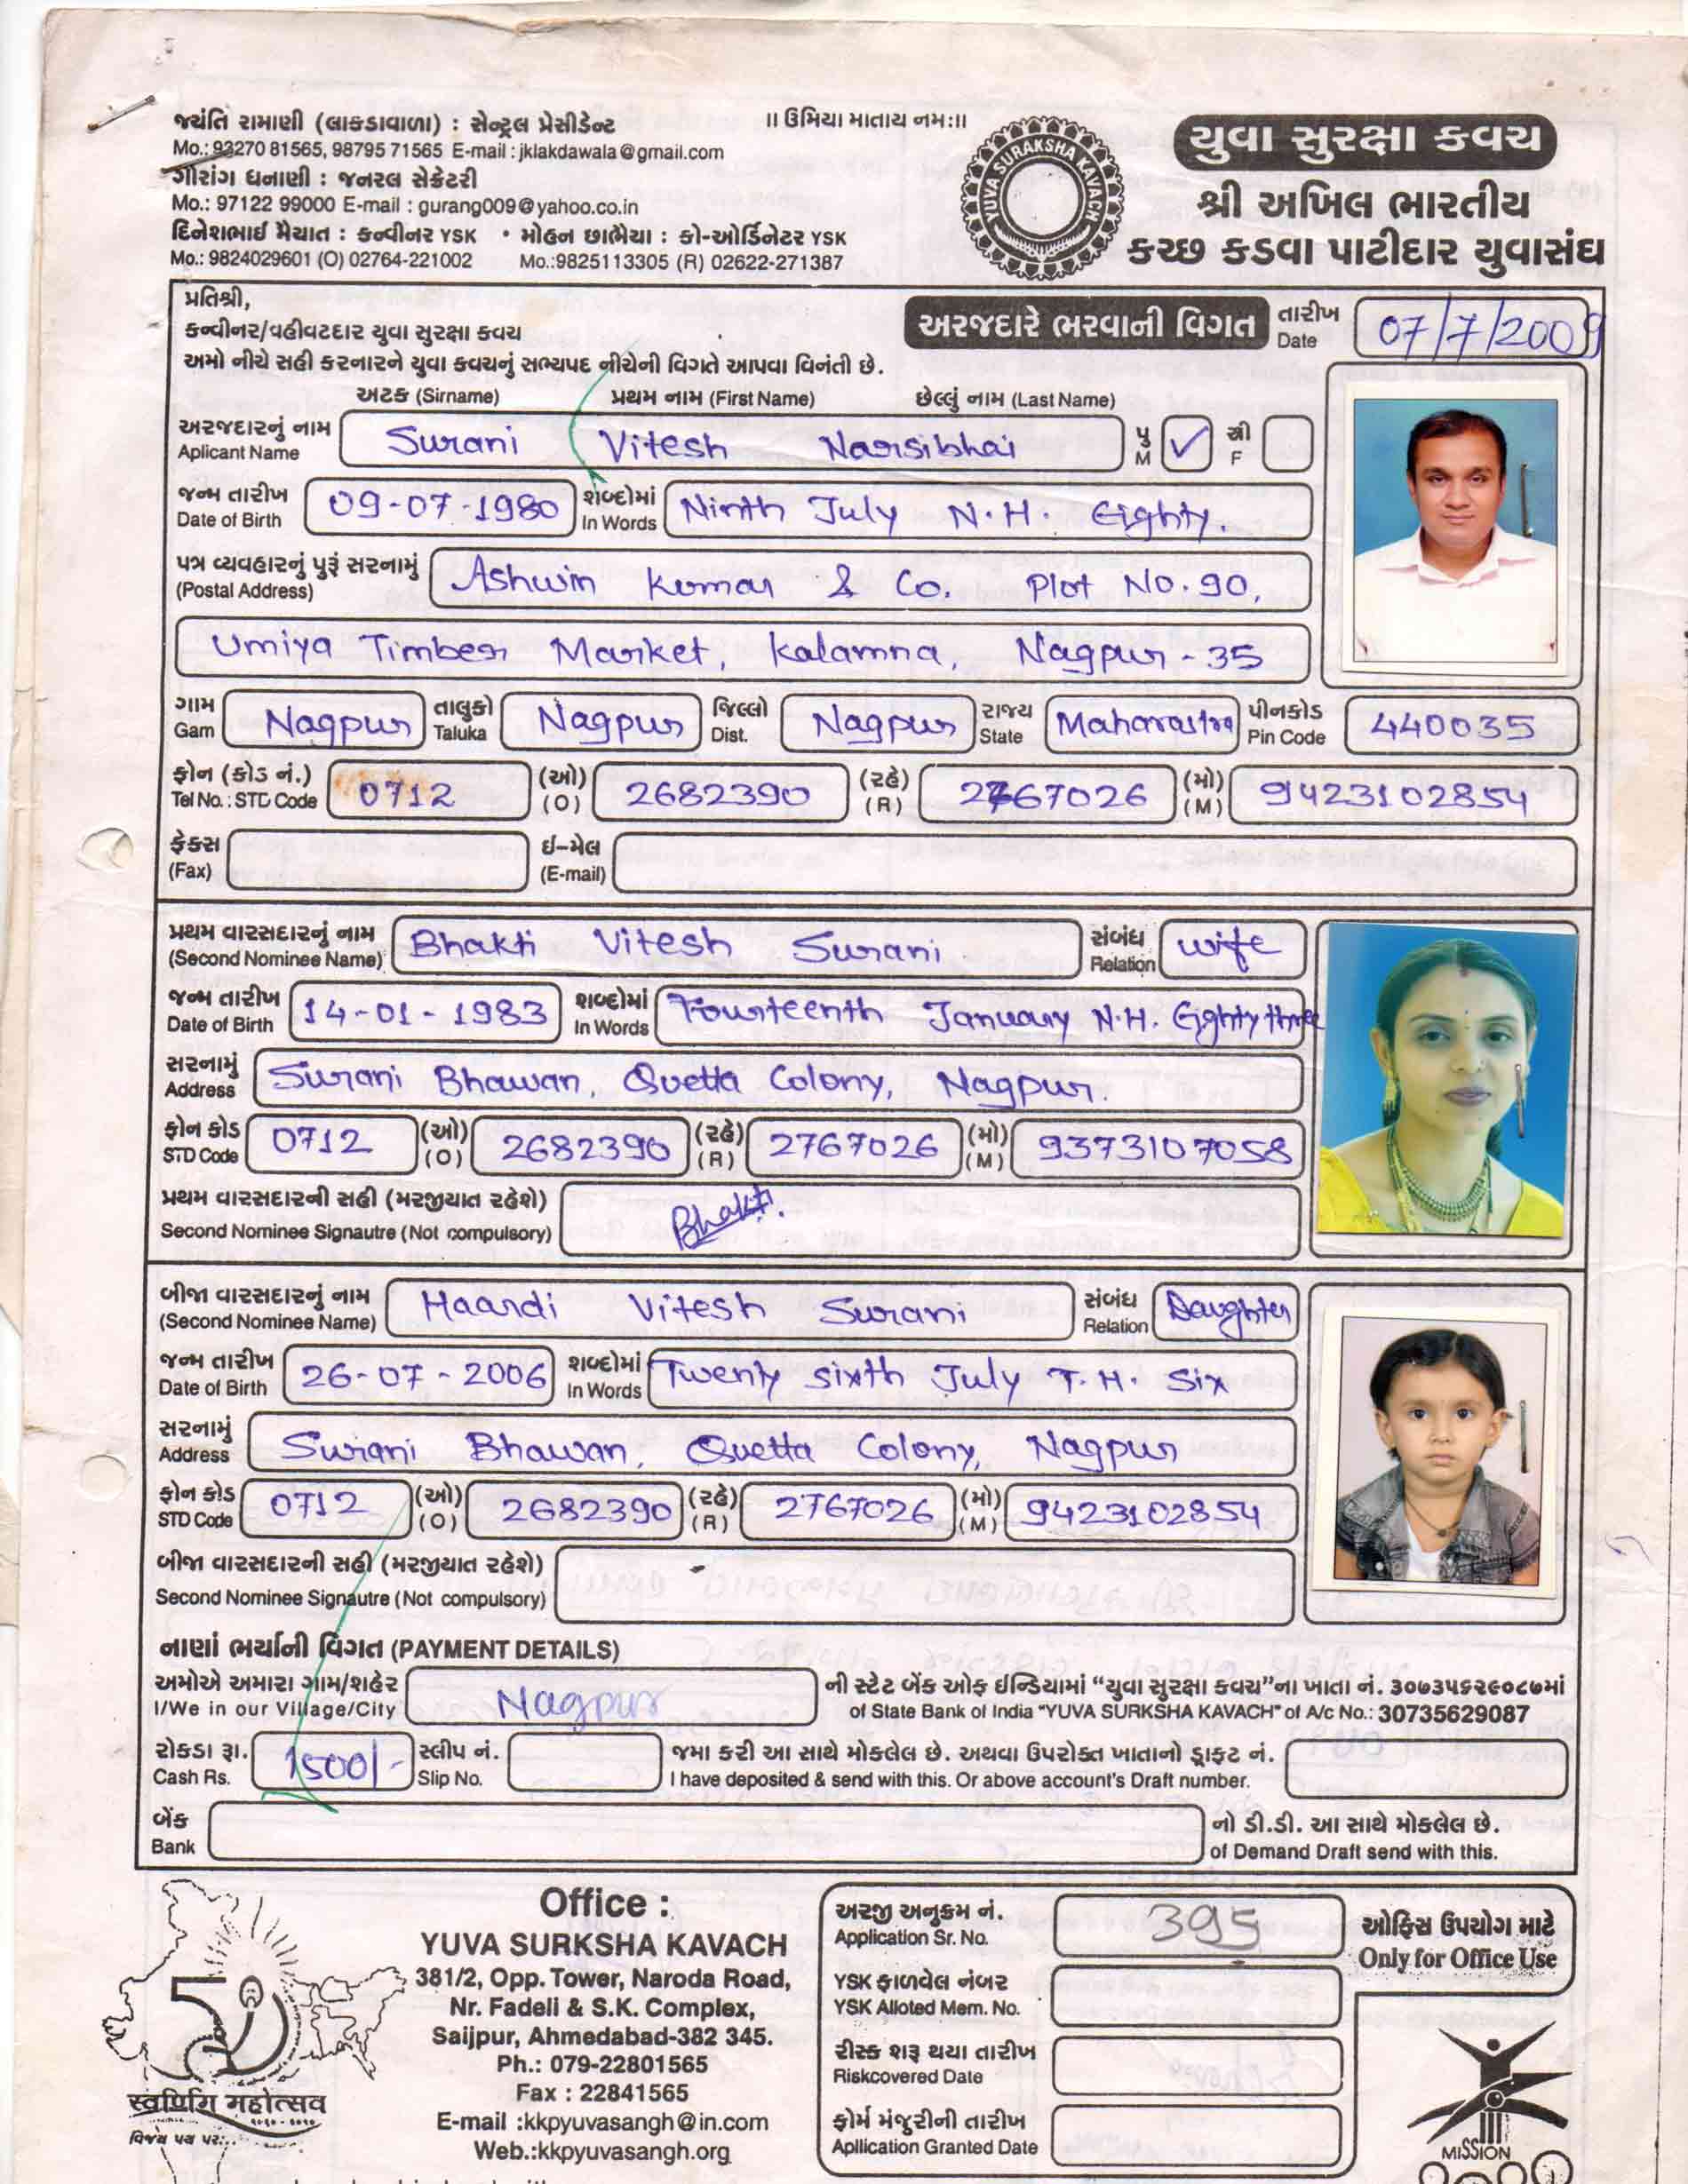 જયંતિ રામાણી (લાકડાવાળા) : સેન્ટ્રલ પ્રેસીડેન્ટ
Mo.: 93270 81565, 98795 71565 E-mail : jklakdawala@gmail.com
ગૌરાંગ ધનાણી : જનરલ સેક્રેટરી
Mo.: 97122 99000 E-mail : gurang009@yahoo.co.in
દિનેશભાઈ મૈયાત : કન્વીનર YSK • મોહન છાભૈયા : કો-ઓર્ડિનેટર YSK
Mo.: 9824029601 (O) 02764-221002 Mo.:9825113305 (R) 02622-271387
॥ ઉમિયા માતાય નમઃ॥
YUVA SURAKSHA KAVACH
યુવા સુરક્ષા કવચ
શ્રી અખિલ ભારતીય
કચ્છ કડવા પાટીદાર યુવાસંઘ
પ્રતિશ્રી,
કન્વીનર/વહીવટદાર યુવા સુરક્ષા કવચ
અરજદારે ભરવાની વિગત
તારીખ
Date 07/7/2009
અમો નીચે સહી કરનારને યુવા કવચનું સભ્યપદ નીચેની વિગતે આપવા વિનંતી છે.
અટક (Sirname) પ્રથમ નામ (First Name) છેલ્લું નામ (Last Name)
અરજદારનું નામ
Aplicant Name Surani Vitesh Narsibhai પુ M ✓ સ્ત્રી F
જન્મ તારીખ
Date of Birth 09-07-1980 શબ્દોમાં In Words Ninth July N.H. Eighty.
પત્ર વ્યવહારનું પુરૂં સરનામું
(Postal Address) Ashwin Kumar & Co. Plot No. 90,
Umiya Timber Market, Kalamna, Nagpur - 35
ગામ Gam Nagpur તાલુકો Taluka Nagpur જિલ્લો Dist. Nagpur રાજ્ય State Maharastra પીનકોડ Pin Code 440035
ફોન (કોડ નં.)
Tel No. : STD Code 0712 (ઓ) (O) 2682390 (રહે) (R) 2767026 (મો) (M) 9423102854
ફેકસ (Fax) ઈ-મેલ (E-mail)
પ્રથમ વારસદારનું નામ
(Second Nominee Name) Bhakti Vitesh Surani સંબંધ Relation wife
જન્મ તારીખ
Date of Birth 14-01-1983 શબ્દોમાં In Words Fourteenth January N.H. Eighty three
સરનામું
Address Surani Bhawan, Quetta Colony, Nagpur.
ફોન કોડ
STD Code 0712 (ઓ) (O) 2682390 (રહે) (R) 2767026 (મો) (M) 9373107058
પ્રથમ વારસદારની સહી (મરજીયાત રહેશે)
Second Nominee Signautre (Not compulsory) Bhakti.
બીજા વારસદારનું નામ
(Second Nominee Name) Haardi Vitesh Surani સંબંધ Relation Daughter
જન્મ તારીખ
Date of Birth 26-07-2006 શબ્દોમાં In Words Twenty sixth July T.H. Six
સરનામું
Address Surani Bhawan, Quetta Colony, Nagpur
ફોન કોડ
STD Code 0712 (ઓ) (O) 2682390 (રહે) (R) 2767026 (મો) (M) 9423102854
બીજા વારસદારની સહી (મરજીયાત રહેશે)
Second Nominee Signautre (Not compulsory)
નાણાં ભર્યાની વિગત (PAYMENT DETAILS)
અમોએ અમારા ગામ/શહેર Nagpur ની સ્ટેટ બેંક ઓફ ઈન્ડિયામાં “યુવા સુરક્ષા કવચ”ના ખાતા નં. ૩૦૭૩૫૬૨૯૦૮૭માં
I/We in our Village/City of State Bank of India "YUVA SURKSHA KAVACH" of A/c No.: 30735629087
રોકડા રૂા. 1500/- સ્લીપ નં. જમા કરી આ સાથે મોકલેલ છે. અથવા ઉપરોક્ત ખાતાનો ડ્રાફ્ટ નં.
Cash Rs. Slip No. I have deposited & send with this. Or above account's Draft number.
બેંક નો ડી.ડી. આ સાથે મોકલેલ છે.
Bank of Demand Draft send with this.
50
સ્વર્ણિમ महोत्सव
વિજય પથ પર...
Office :
YUVA SURKSHA KAVACH
381/2, Opp. Tower, Naroda Road,
Nr. Fadeli & S.K. Complex,
Saijpur, Ahmedabad-382 345.
Ph.: 079-22801565
Fax : 22841565
E-mail :kkpyuvasangh@in.com
Web.:kkpyuvasangh.org
અરજી અનુક્રમ નં.
Application Sr. No. 395
YSK ફાળવેલ નંબર
YSK Alloted Mem. No.
રીસ્ક શરૂ થયા તારીખ
Riskcovered Date
ફોર્મ મંજુરીની તારીખ
Apllication Granted Date
ઓફિસ ઉપયોગ માટે
Only for Office Use
MISSION